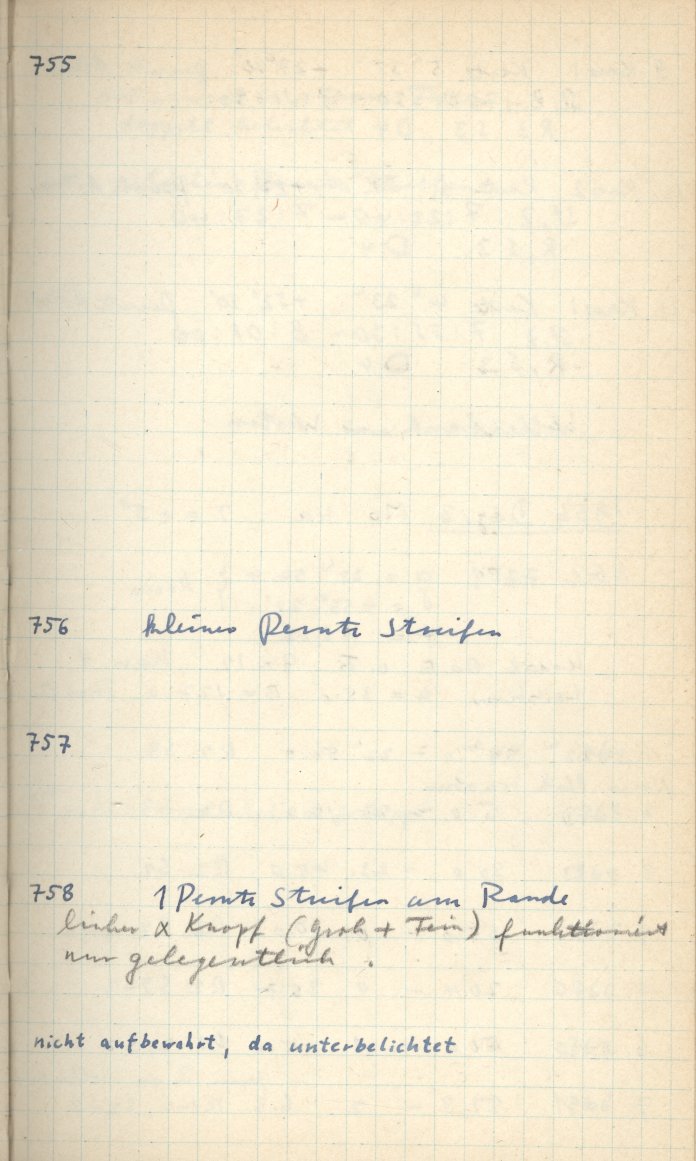 755
756 kleines Streifen
757
758 1 Streifen am Rande
linker α Knopf (Grob + Fein) funktioniert
nur gelegentlich.
nicht aufbewahrt, da unterbelichtet